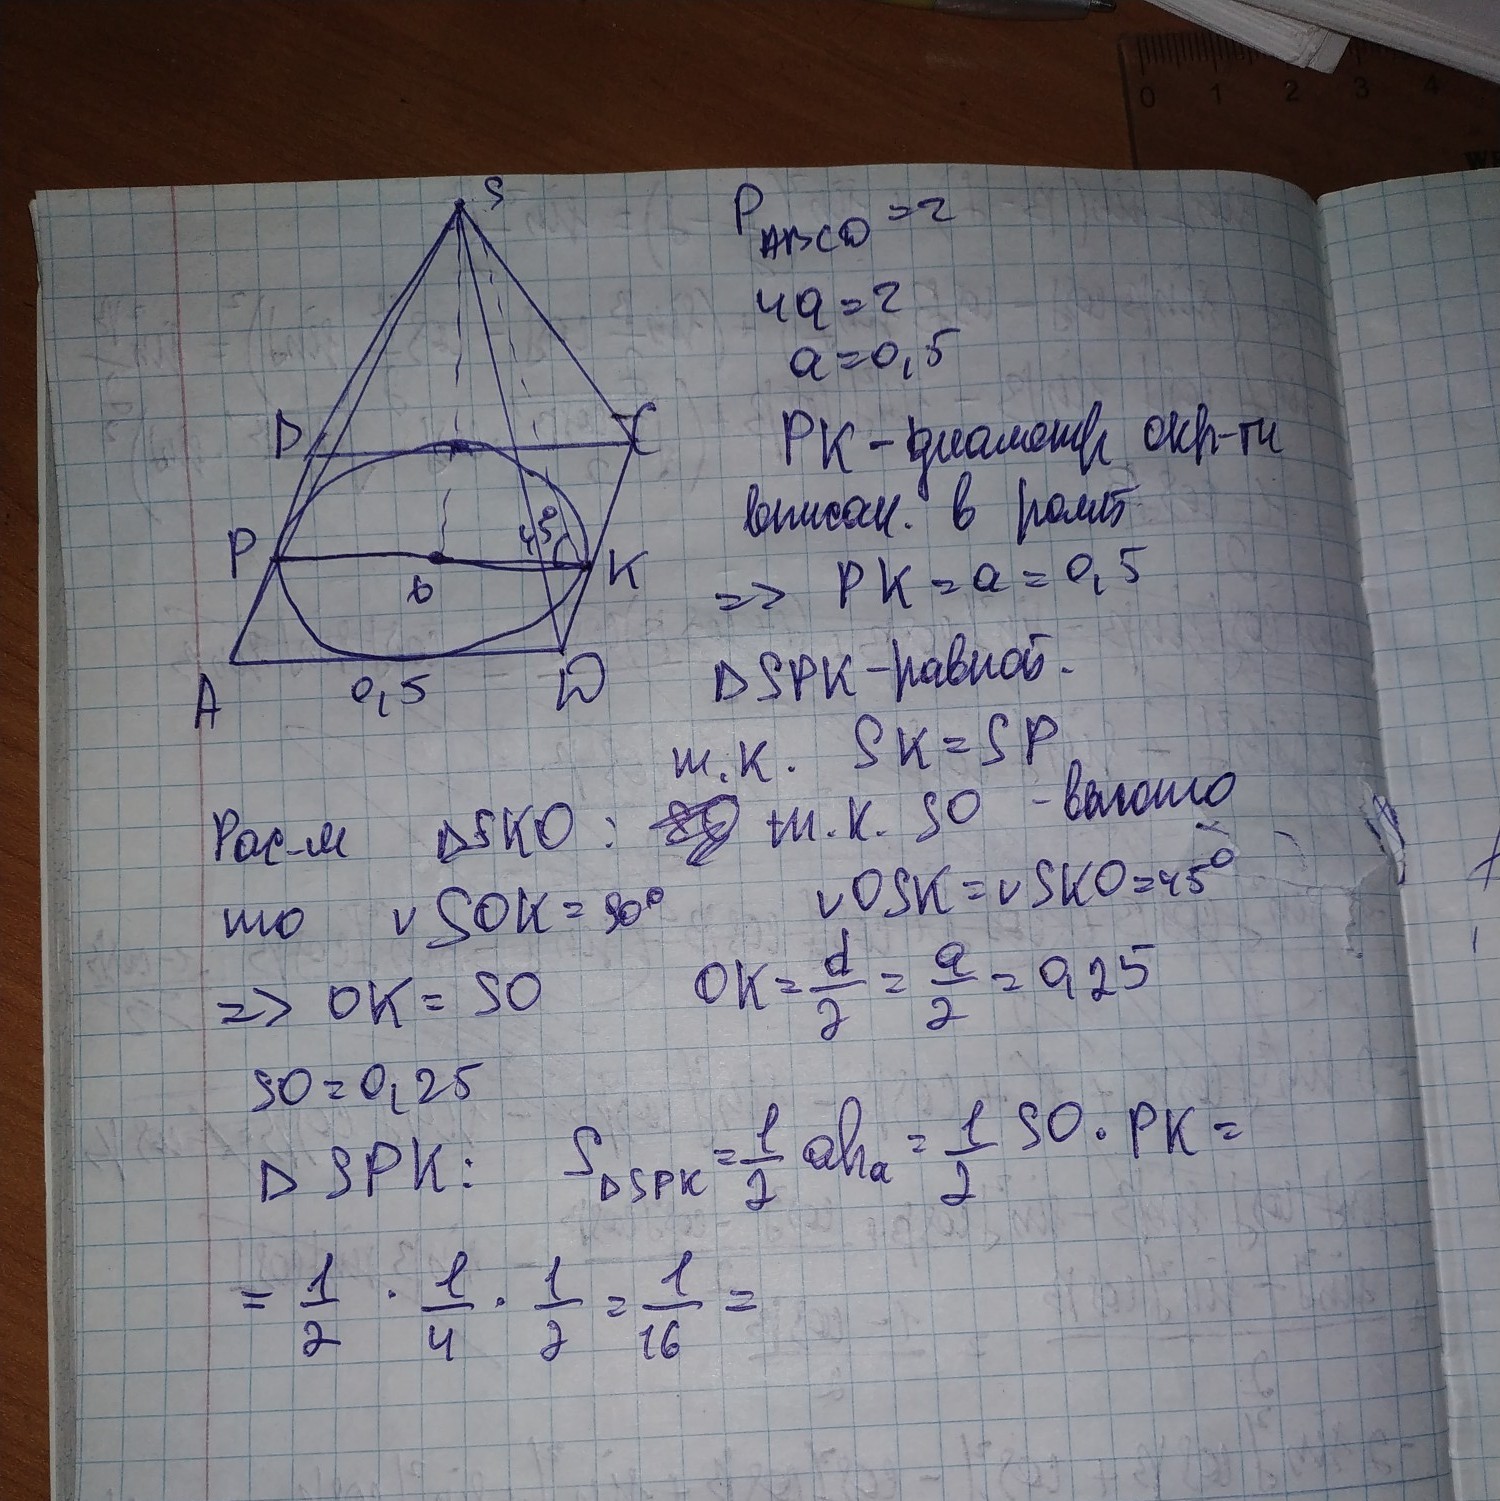 0 1 2 3 4
S
D C
P 45° K
b
A 0,5 D
P ABCD = 2
4a = 2
a = 0,5
PK - диаметр окр-ти
вписан. в ромб
=> PK = a = 0,5
△SPK - равноб.
т.к. SK = SP
Рас-м △SKO : т.к. SO - высота
то ∨SOK = 90° ∨OSK = ∨SKO = 45°
=> OK = SO OK = d/2 = a/2 = 0,25
SO = 0,25
△SPK: S△SPK = 1/2 ah a = 1/2 SO · PK =
= 1/2 · 1/4 · 1/2 = 1/16 =